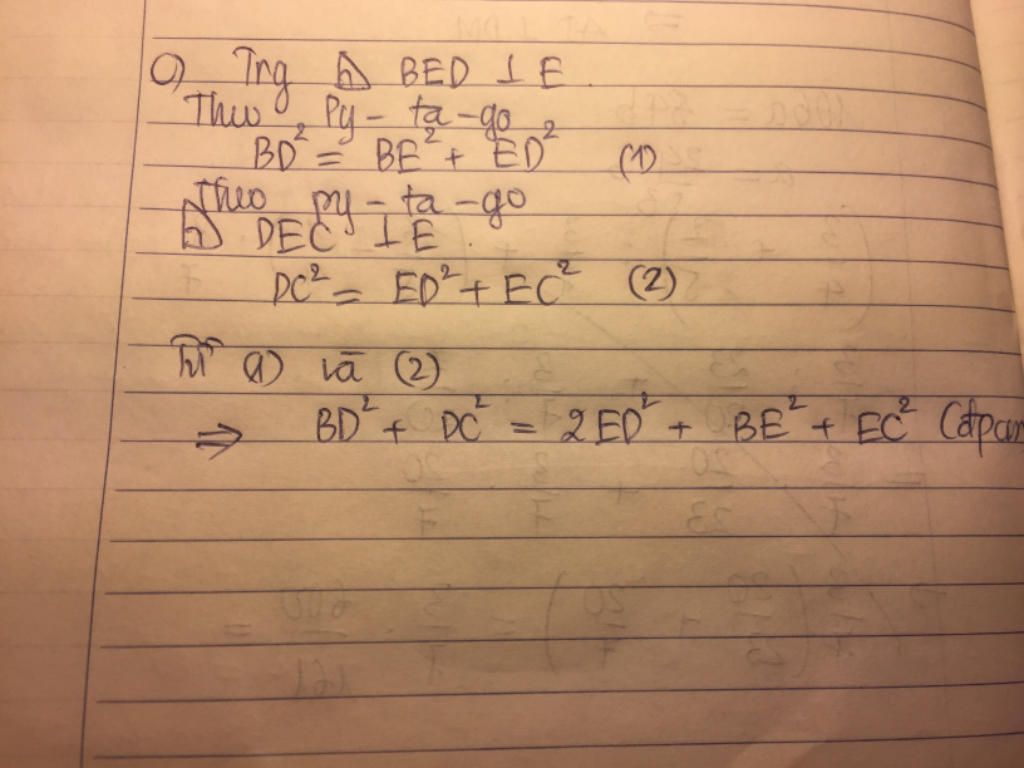 c) Trg △ BED ⊥ E.
Theo Py-ta-go
BD² = BE² + ED² (1)
Theo py-ta-go
△ DEC ⊥ E.
DC² = ED² + EC² (2)
Từ (1) và (2)
⇒ BD² + DC² = 2ED² + BE² + EC² (đpcm